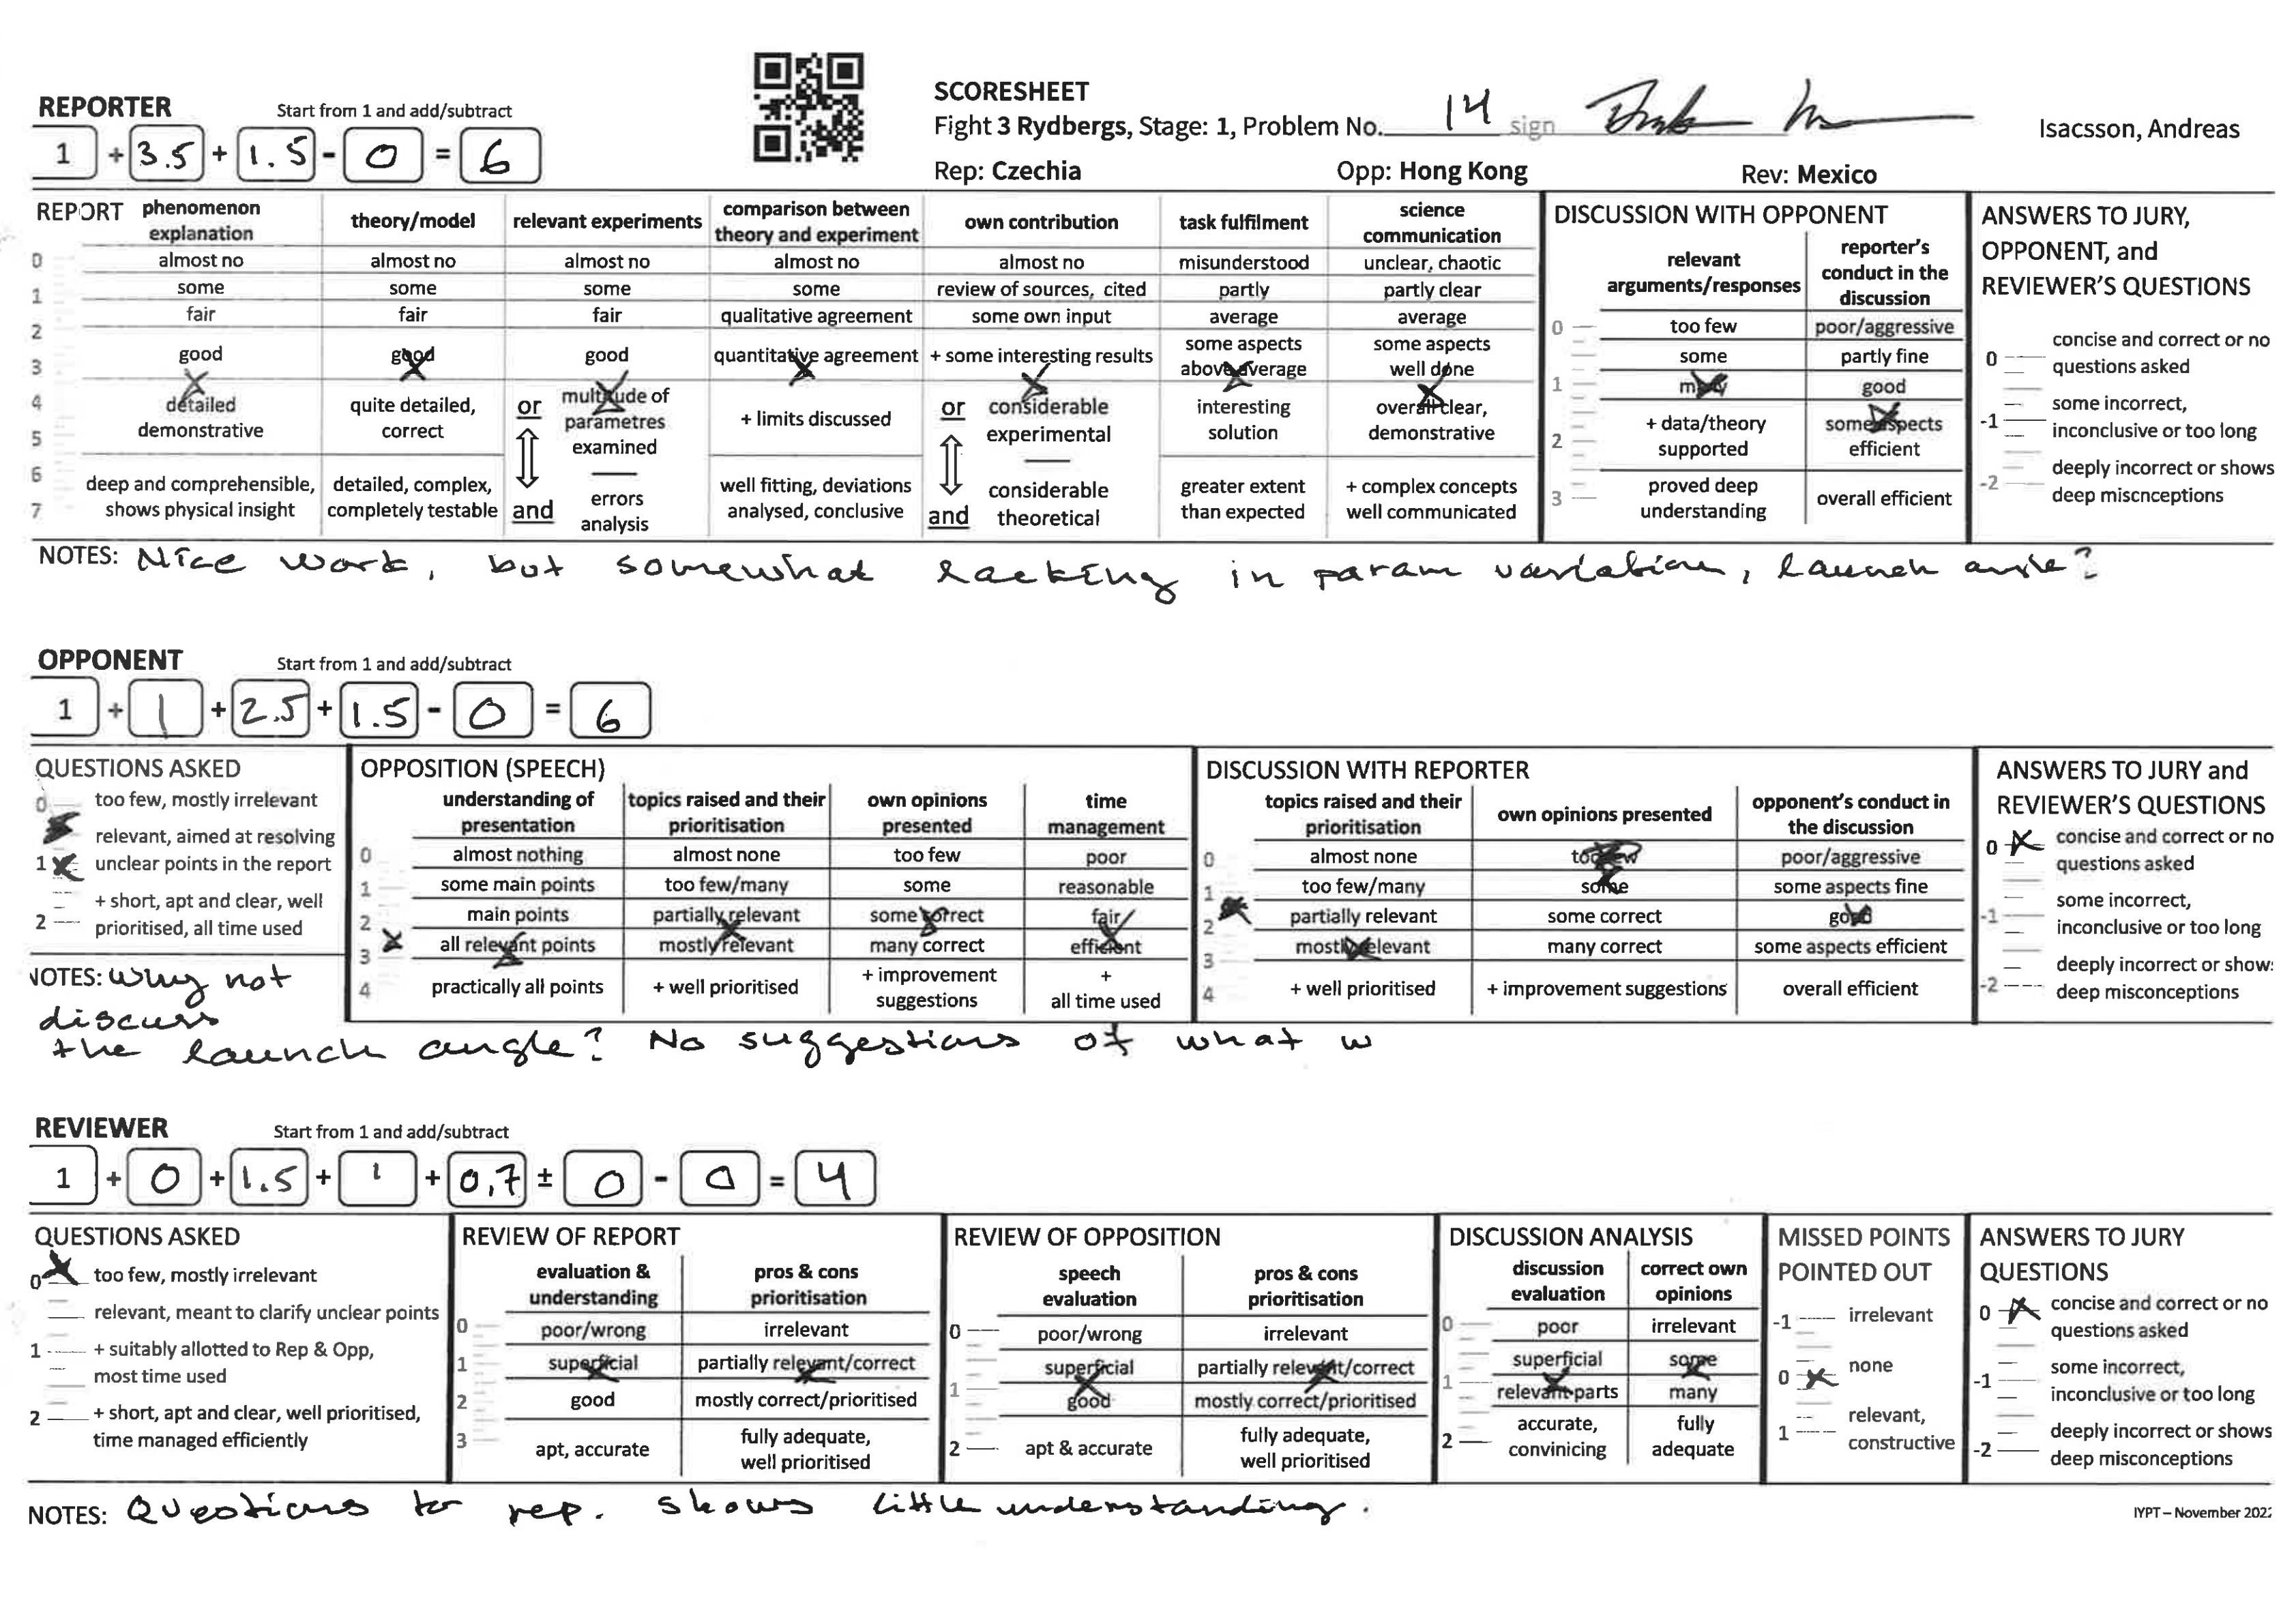 SCORESHEET
REPORTER Start from 1 and add/subtract
Fight 3 Rydbergs, Stage: 1, Problem No. 14 sign
Isacsson, Andreas
1 + 3.5 + 1.5 - 0 = 6
Rep: Czechia Opp: Hong Kong Rev: Mexico
REPORT
phenomenon explanation
almost no
some
fair
good
detailed demonstrative
deep and comprehensible, shows physical insight
theory/model
almost no
some
fair
good
quite detailed, correct
detailed, complex, completely testable
relevant experiments
almost no
some
fair
good
or
multitude of parametres examined
and
errors analysis
comparison between theory and experiment
almost no
some
qualitative agreement
quantitative agreement
+ limits discussed
well fitting, deviations analysed, conclusive
own contribution
almost no
review of sources, cited
some own input
+ some interesting results
or
considerable experimental
and
considerable theoretical
task fulfilment
misunderstood
partly
average
some aspects above average
interesting solution
greater extent than expected
science communication
unclear, chaotic
partly clear
average
some aspects well done
overall clear, demonstrative
+ complex concepts well communicated
0
1
2
3
4
5
6
7
DISCUSSION WITH OPPONENT
relevant arguments/responses
too few
some
many
+ data/theory supported
proved deep understanding
reporter's conduct in the discussion
poor/aggressive
partly fine
good
some aspects efficient
overall efficient
0
1
2
3
ANSWERS TO JURY, OPPONENT, and REVIEWER'S QUESTIONS
0 concise and correct or no questions asked
-1 some incorrect, inconclusive or too long
-2 deeply incorrect or shows deep miscnceptions
NOTES: Nice work, but somewhat lacking in param variation, launch angle?
OPPONENT Start from 1 and add/subtract
1 + 1 + 2.5 + 1.5 - 0 = 6
QUESTIONS ASKED
0 too few, mostly irrelevant
relevant, aimed at resolving
1 unclear points in the report
+ short, apt and clear, well
2 prioritised, all time used
OPPOSITION (SPEECH)
understanding of presentation
almost nothing
some main points
main points
all relevant points
practically all points
topics raised and their prioritisation
almost none
too few/many
partially relevant
mostly relevant
+ well prioritised
own opinions presented
too few
some
some correct
many correct
+ improvement suggestions
time management
poor
reasonable
fair
efficient
+ all time used
0
1
2
3
4
DISCUSSION WITH REPORTER
topics raised and their prioritisation
almost none
too few/many
partially relevant
mostly relevant
+ well prioritised
own opinions presented
too few
some
some correct
many correct
+ improvement suggestions
opponent's conduct in the discussion
poor/aggressive
some aspects fine
good
some aspects efficient
overall efficient
0
1
2
3
4
ANSWERS TO JURY and REVIEWER'S QUESTIONS
0 concise and correct or no questions asked
-1 some incorrect, inconclusive or too long
-2 deeply incorrect or show deep misconceptions
NOTES: Why not
discuss
the launch angle? No suggestions of what w
REVIEWER Start from 1 and add/subtract
1 + 0 + 1.5 + 1 + 0,7 ± 0 - 0 = 4
QUESTIONS ASKED
0 too few, mostly irrelevant
relevant, meant to clarify unclear points
1 + suitably allotted to Rep & Opp,
most time used
2 + short, apt and clear, well prioritised,
time managed efficiently
REVIEW OF REPORT
evaluation & understanding
poor/wrong
superficial
good
apt, accurate
pros & cons prioritisation
irrelevant
partially relevant/correct
mostly correct/prioritised
fully adequate, well prioritised
0
1
2
3
REVIEW OF OPPOSITION
speech evaluation
poor/wrong
superficial
good
apt & accurate
pros & cons prioritisation
irrelevant
partially relevant/correct
mostly correct/prioritised
fully adequate, well prioritised
0
1
2
DISCUSSION ANALYSIS
discussion evaluation
poor
superficial
relevant parts
accurate, convinicing
correct own opinions
irrelevant
some
many
fully adequate
0
1
2
MISSED POINTS POINTED OUT
-1 irrelevant
0 none
1 relevant, constructive
ANSWERS TO JURY QUESTIONS
0 concise and correct or no questions asked
-1 some incorrect, inconclusive or too long
-2 deeply incorrect or shows deep misconceptions
NOTES: Questions to rep. shows little understanding.
IYPT – November 202